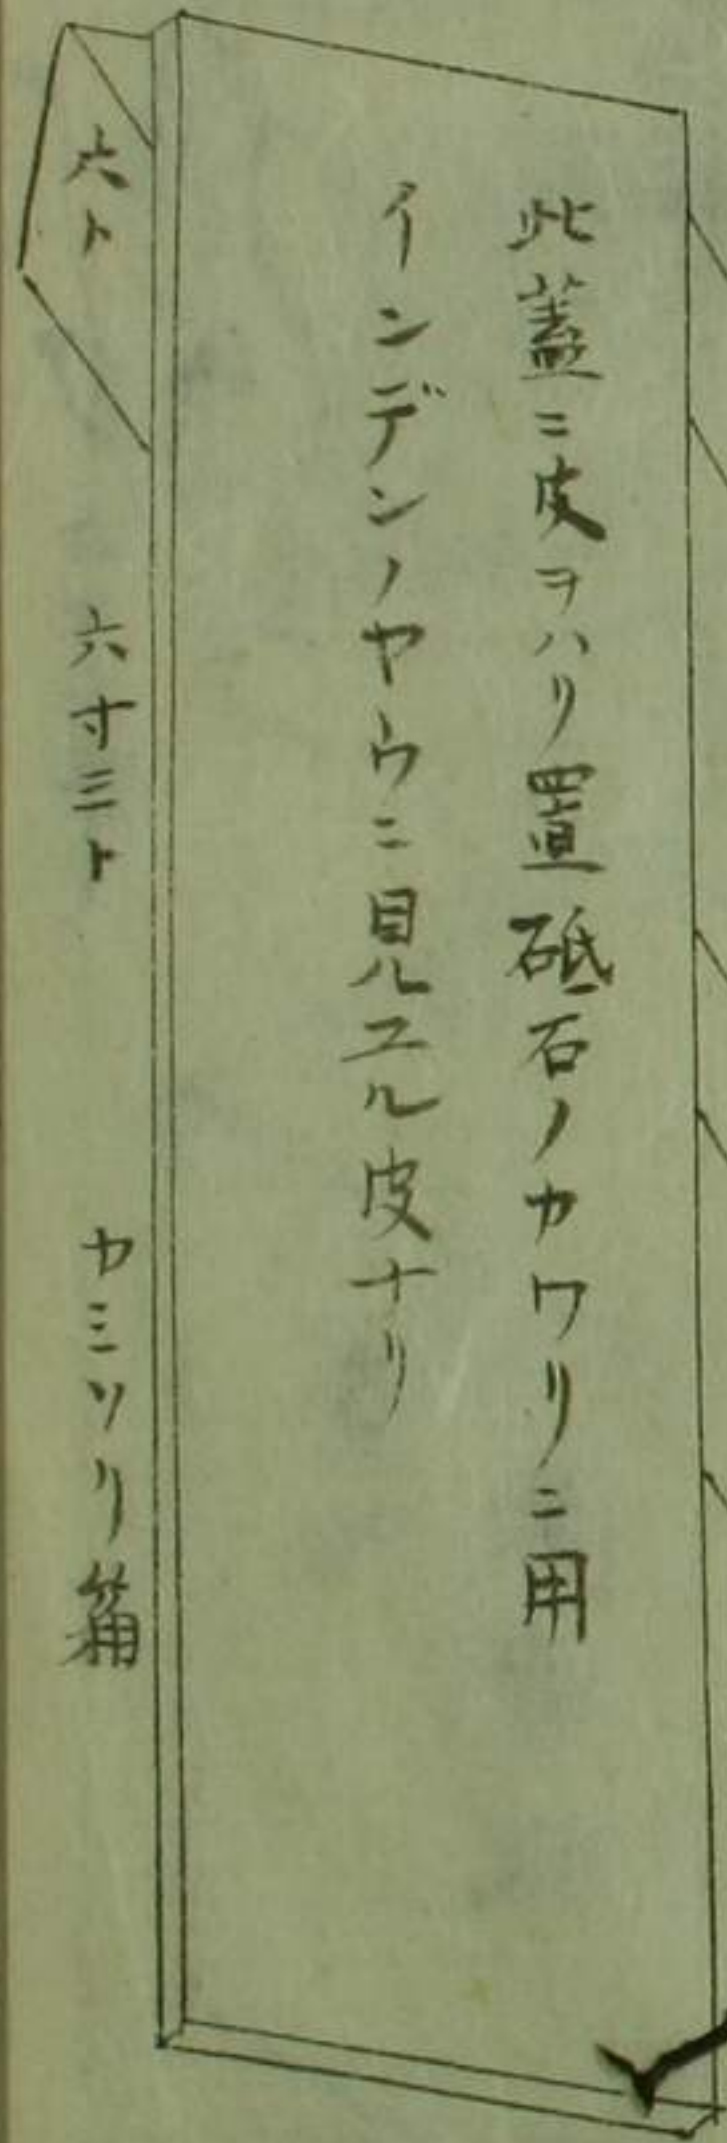 此蓋ニ皮ヲハリ置砥石ノカワリニ用
インデンノヤウニ見エル皮ナリ
六ト
六寸三ト
カミソリ箱